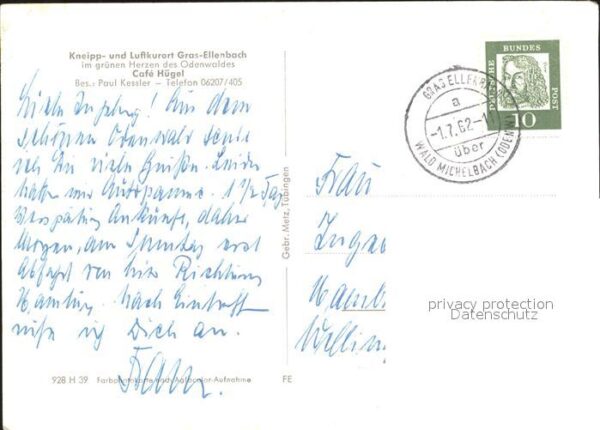 Kneipp- und Luftkurort Gras-Ellenbach
im grünen Herzen des Odenwaldes
Café Hügel
Bes.: Paul Kessler – Telefon 06207/405
Aus dem
schönen Odenwald sende
ich Dir viele Grüße. Leider
hatten wir Autopanne. 1 1/2 Tag
Verspätung Ankunft, daher
Morgen, am Sonntag erst
Abfahrt von hier Richtung
Hamburg. Nach Eintreff
rufe ich Dich an.
928 H 39 Farbphotokarte nach Agfacolor-Aufnahme FE
Gebr. Metz, Tübingen
DEUTSCHE BUNDES POST
10
GRAS ELLENBACH
a
-1.7.62-11
über
WALD MICHELBACH (ODENW)
Frau
privacy protection
Datenschutz